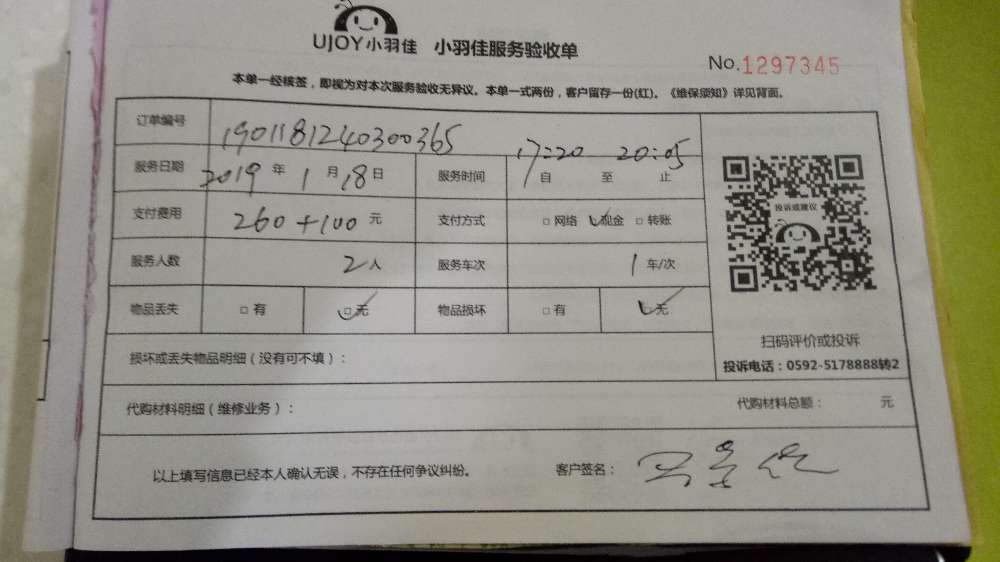 UJOY小羽佳 小羽佳服务验收单
No.1297345
本单一经核签，即视为对本次服务验收无异议。本单一式两份，客户留存一份(红)。《维保须知》详见背面。
订单编号 1901181240300365
服务日期 2019年1月18日 服务时间 17:20 20:05 自 至 止
投诉或建议
支付费用 260+100元 支付方式 □网络 ☑现金 □转账
服务人数 2人 服务车次 1车/次
物品丢失 □有 ☑无 物品损坏 □有 ☑无
扫码评价或投诉
损坏或丢失物品明细（没有可不填）：
投诉电话：0592-5178888转2
代购材料明细（维修业务）： 代购材料总额： 元
以上填写信息已经本人确认无误，不存在任何争议纠纷。 客户签名：